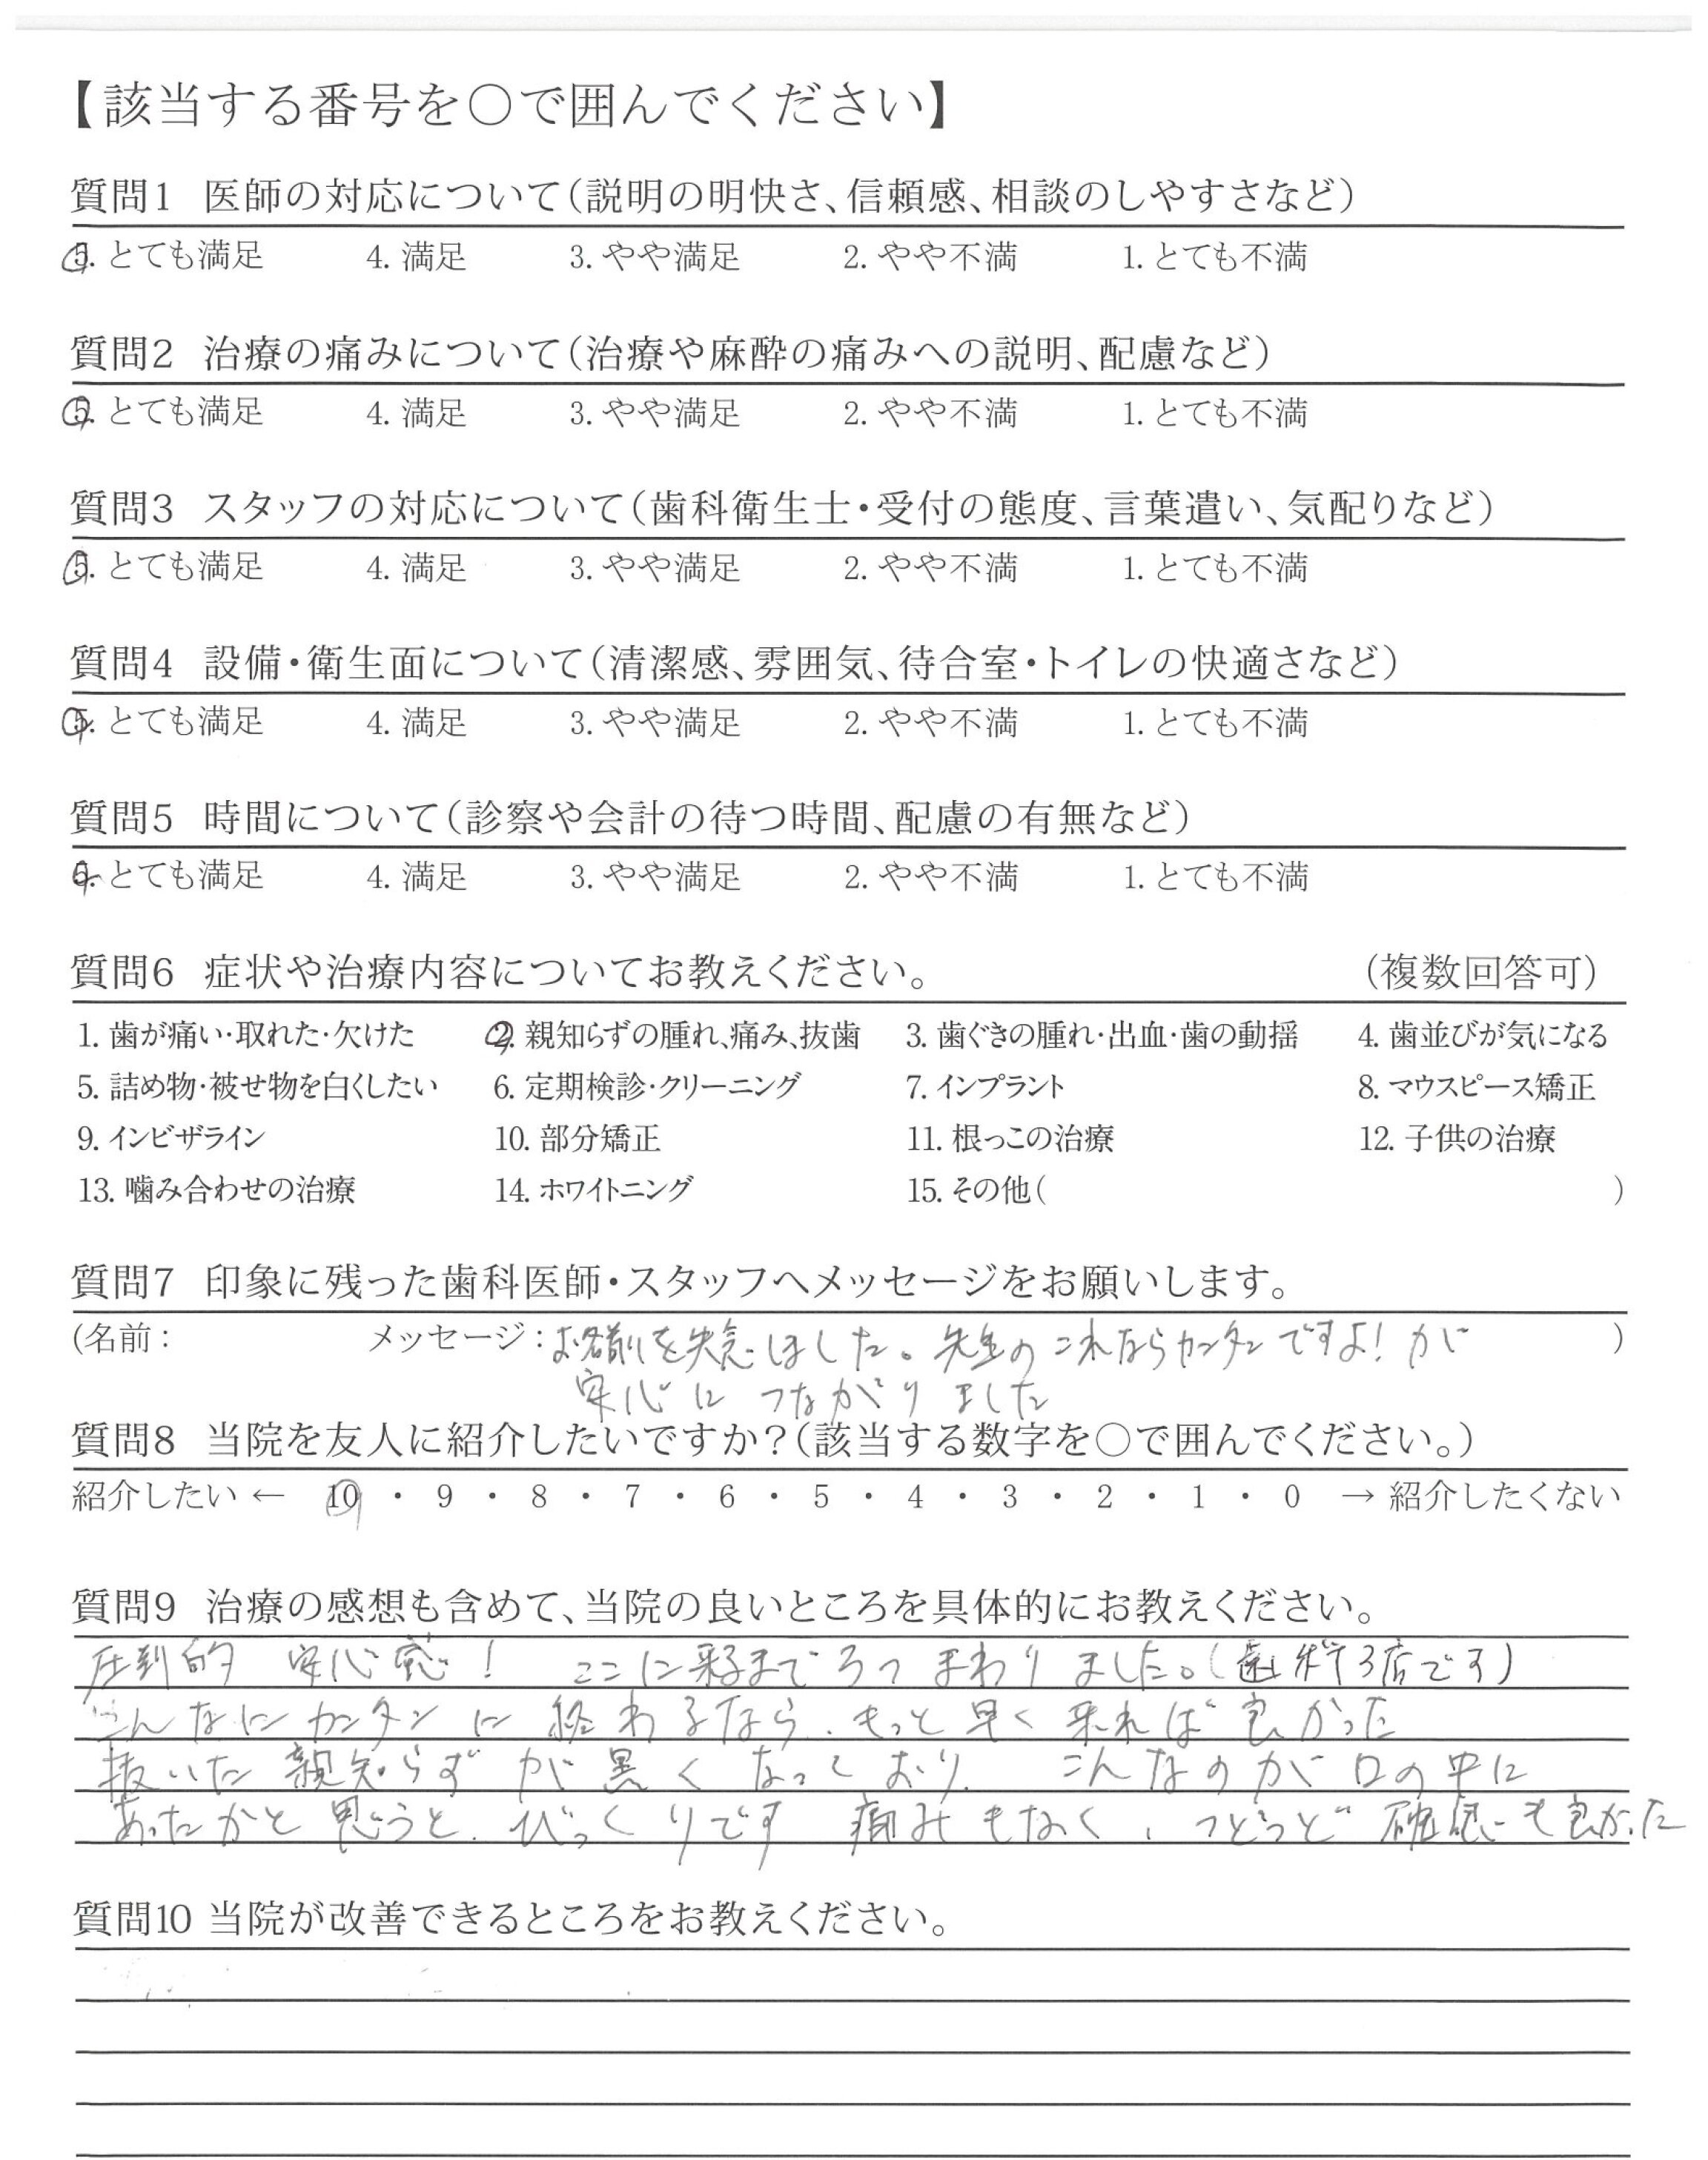 【該当する番号を○で囲んでください】
質問1 医師の対応について(説明の明快さ、信頼感、相談のしやすさなど)
5. とても満足 4. 満足 3. やや満足 2. やや不満 1. とても不満
質問2 治療の痛みについて(治療や麻酔の痛みへの説明、配慮など)
5. とても満足 4. 満足 3. やや満足 2. やや不満 1. とても不満
質問3 スタッフの対応について(歯科衛生士・受付の態度、言葉遣い、気配りなど)
5. とても満足 4. 満足 3. やや満足 2. やや不満 1. とても不満
質問4 設備・衛生面について(清潔感、雰囲気、待合室・トイレの快適さなど)
5. とても満足 4. 満足 3. やや満足 2. やや不満 1. とても不満
質問5 時間について(診察や会計の待つ時間、配慮の有無など)
5. とても満足 4. 満足 3. やや満足 2. やや不満 1. とても不満
質問6 症状や治療内容についてお教えください。 (複数回答可)
1. 歯が痛い・取れた・欠けた 2. 親知らずの腫れ、痛み、抜歯 3. 歯ぐきの腫れ・出血・歯の動揺 4. 歯並びが気になる
5. 詰め物・被せ物を白くしたい 6. 定期検診・クリーニング 7. インプラント 8. マウスピース矯正
9. インビザライン 10. 部分矯正 11. 根っこの治療 12. 子供の治療
13. 噛み合わせの治療 14. ホワイトニング 15. その他( )
質問7 印象に残った歯科医師・スタッフへメッセージをお願いします。
(名前: メッセージ: お名前を失念しました。先生のこれならカンタンですよ!が )
安心につながりました
質問8 当院を友人に紹介したいですか?(該当する数字を○で囲んでください。)
紹介したい ← 10 ・ 9 ・ 8 ・ 7 ・ 6 ・ 5 ・ 4 ・ 3 ・ 2 ・ 1 ・ 0 → 紹介したくない
質問9 治療の感想も含めて、当院の良いところを具体的にお教えください。
圧到的 安心感! ここに来るまで3つまわりました。(歯科3店です)
こんなにカンタンに終わるなら、もっと早く来れば良かった
抜いた親知らずが黒くなっており、こんなのが口の中に
あったかと思うと、びっくりです 痛みもなく、つどつど確認も良かった
質問10 当院が改善できるところをお教えください。